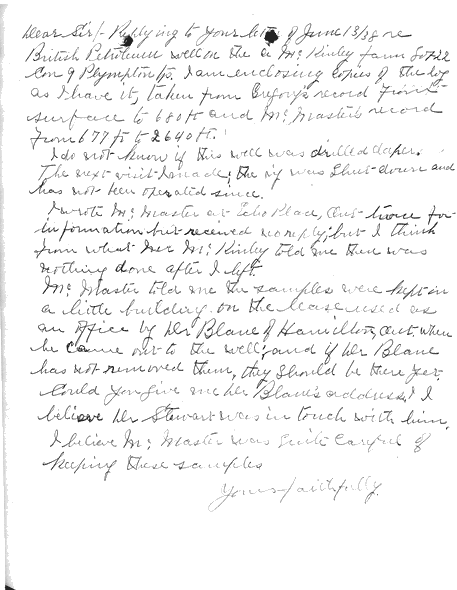 Dear Sir/- Replying to your letter of June 13/38 re
British Petroleum well on the a Mc Kinley farm Lot 22
Con 9 Plympton Tp. I am enclosing copies of the log
as I have it, taken from Gregory's record from
surface to 680 ft and Mc Master's record
from 677 ft to 2640 ft.
I do not know if this well was drilled deeper.
The next visit I made, the rig was shut down and
has not been operated since.
I wrote Mc Master at Echo Place, Ont twice for
information but received no reply; but I think
from what Mr Mc Kinley told me there was
nothing done after I left.
Mc Master told me the samples were kept in
a little building on the lease used as
an office by Mr Blane of Hamilton, Ont. when
he came out to the well; and if Mr Blane
has not removed them, they should be there yet.
Could you give me Mr Blane's address? I
believe Mr Stewart was in touch with him.
I believe Mc Master was quite careful of
keeping these samples
Yours faithfully.